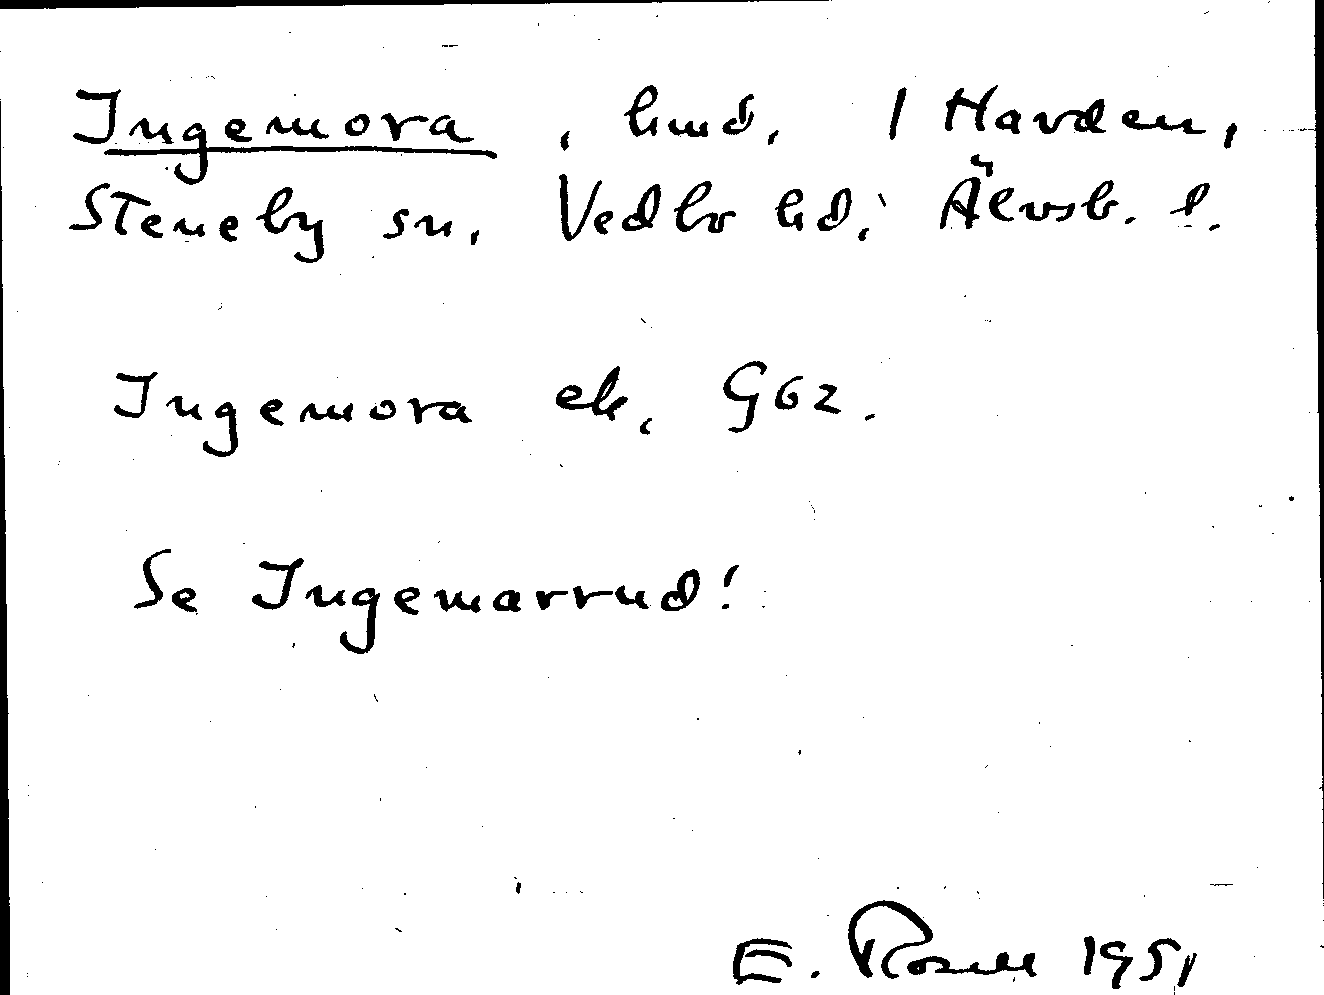 Ingemora, hmd, 1 Harden,
Steneby sn, Vedbo hd, Älvsb. l.
Ingemora ek, G62.
Se Ingemarrud!
E. Rosell 1951